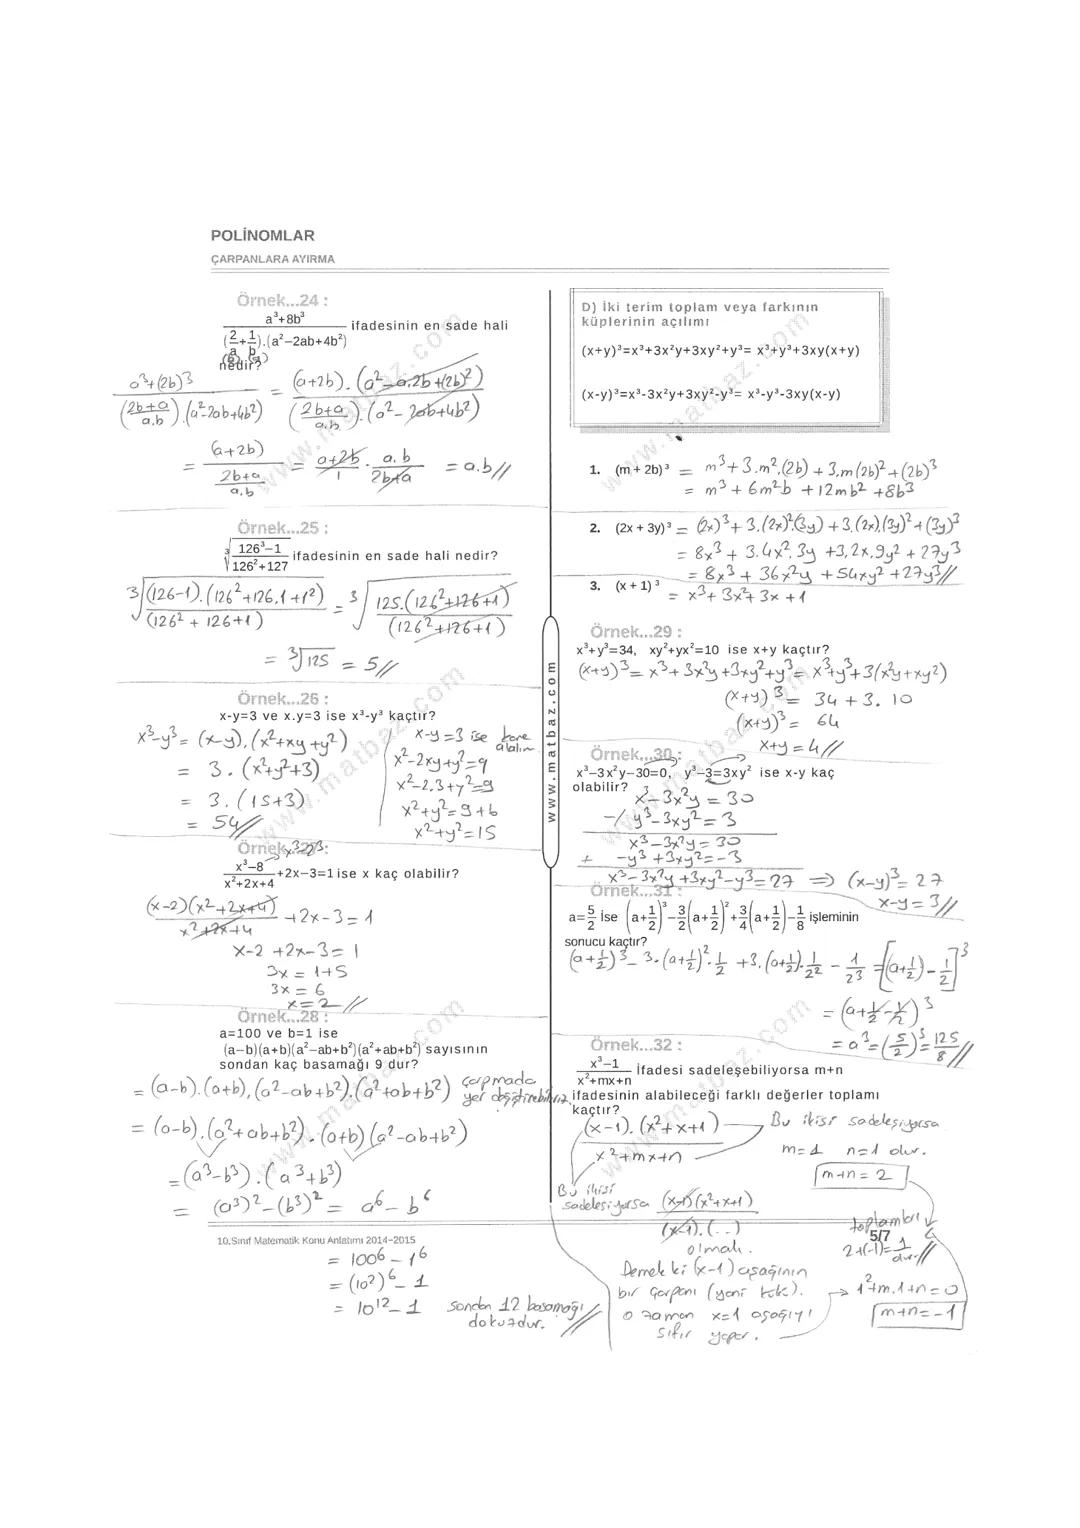 POLİNOMLAR
ÇARPANLARA AYIRMA
Örnek...24 :
a³+8b³
(2/a+1/b).(a²−2ab+4b²) ifadesinin en sade hali
(b) (a)
nedir?
a³+(2b)³ / ((2b+a)/a.b).(a²-2ab+4b²) = (a+2b).(a²-a.2b+(2b)²) / ((2b+a)/a.b).(a²-2ab+4b²)
= (a+2b) / ((2b+a)/a.b) = (a+2b)/1 . a.b/(2b+a) = a.b//
Örnek...25 :
∛((126³−1)/(126²+127)) ifadesinin en sade hali nedir?
∛((126-1).(126²+126.1+1²)/(126²+126+1)) = ∛(125.(126²+126+1)/(126²+126+1))
= ∛125 = 5//
Örnek...26 :
x-y=3 ve x.y=3 ise x³-y³ kaçtır?
x³-y³ = (x-y).(x²+xy+y²)
= 3.(x²+y²+3)
= 3.(15+3)
= 54//
x-y=3 ise kare alalım.
x²-2xy+y²=9
x²-2.3+y²=9
x²+y²=9+6
x²+y²=15
Örnek...27 :
x³-2³
(x³−8)/(x²+2x+4)+2x−3=1 ise x kaç olabilir?
(x-2)(x²+2x+4)/(x²+2x+4) +2x-3=1
x-2+2x-3=1
3x=1+5
3x=6
x=2//
Örnek...28 :
a=100 ve b=1 ise
(a−b)(a+b)(a²−ab+b²)(a²+ab+b²) sayısının
sondan kaç basamağı 9 dur?
= (a-b).(a+b).(a²-ab+b²).(a²+ab+b²) çarpmada yer değiştirebiliriz.
= (a-b).(a²+ab+b²).(a+b)(a²-ab+b²)
= (a³-b³).(a³+b³)
= (a³)²-(b³)² = a⁶-b⁶
10.Sınıf Matematik Konu Anlatımı 2014−2015
= 100⁶-1⁶
= (10²)⁶-1
= 10¹²-1 sondan 12 basamağı dokuzdur.//
www.matbaz.com
D) İki terim toplam veya farkının
küplerinin açılımı
(x+y)³=x³+3x²y+3xy²+y³= x³+y³+3xy(x+y)
(x-y)³=x³-3x²y+3xy²-y³= x³-y³-3xy(x-y)
1. (m + 2b)³ = m³+3.m².(2b)+3.m(2b)²+(2b)³
= m³+6m²b+12mb²+8b³
2. (2x + 3y)³ = (2x)³+3.(2x)².(3y)+3.(2x).(3y)²+(3y)³
= 8x³+3.4x².3y+3.2x.9y²+27y³
= 8x³+36x²y+54xy²+27y³//
3. (x + 1)³ = x³+3x²+3x+1
Örnek...29 :
x³+y³=34, xy²+yx²=10 ise x+y kaçtır?
(x+y)³=x³+3x²y+3xy²+y³=x³+y³+3(x²y+xy²)
(x+y)³=34+3.10
(x+y)³=64
x+y=4//
Örnek...30 :
x³−3x²y−30=0, y³−3=3xy² ise x-y kaç
olabilir?
x³-3x²y=30
-/ y³-3xy²=3
x³-3x²y=30
+ -y³+3xy²=-3
x³-3x²y+3xy²-y³=27 ⇒ (x-y)³=27
x-y=3//
Örnek...31 :
a=5/2 ise (a+1/2)³−3/2(a+1/2)²+3/4(a+1/2)−1/8 işleminin
sonucu kaçtır?
(a+1/2)³-3.(a+1/2)².1/2+3.(a+1/2).1/2²-1/2³=[(a+1/2)-1/2]³
= (a+1/2-1/2)³
= a³=(5/2)³=125/8//
Örnek...32 :
(x³−1)/(x²+mx+n) İfadesi sadeleşebiliyorsa m+n
ifadesinin alabileceği farklı değerler toplamı
kaçtır?
(x-1).(x²+x+1)/(x²+mx+n) → Bu ikisi sadeleşiyorsa
m=1 n=1 olur.
m+n=2
Bu ikisi sadeleşiyorsa (x-1)(x²+x+1)/(x-1).(..)
olmalı.
toplamları
5/7
2+(-1)=1 dir.//
Demek ki (x-1) aşağının
bir çarpanı (yani kök).
o zaman x=1 aşağıyı
sıfır yapar.
→ 1²+m.1+n=0
m+n=-1
www.matbaz.com
www.matbaz.com
www.matbaz.com
www.matbaz.com
www.matbaz.com
www.matbaz.com